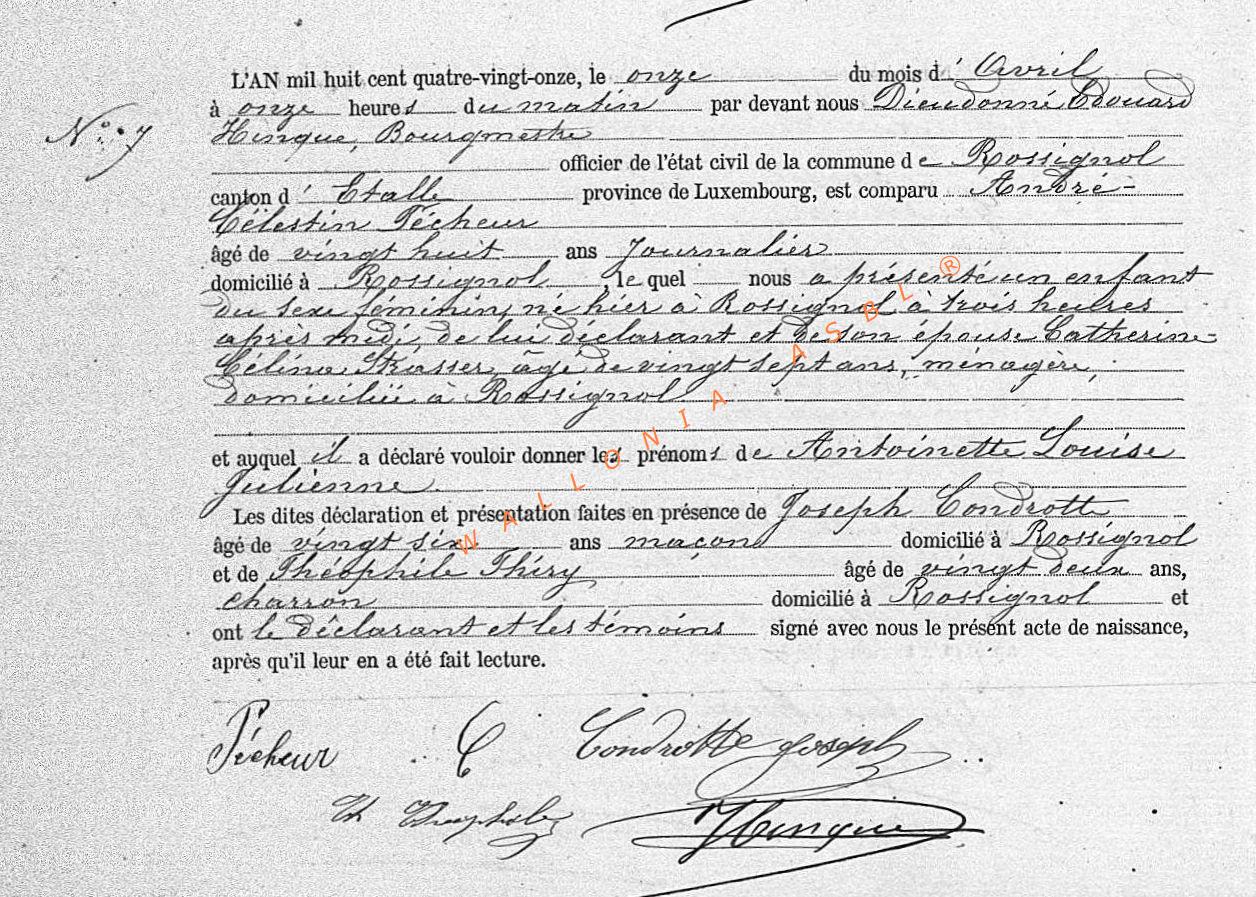 L'AN mil huit cent quatre-vingt-onze, le onze du mois d' Avril
N° 7
à onze heures du matin par devant nous Dieudonné Edouard
Hinque, Bourgmestre
officier de l'état civil de la commune de Rossignol
canton d' Etalle province de Luxembourg, est comparu André-
Célestin Pécheur
âgé de vingt huit ans Journalier
domicilié à Rossignol, le quel nous a présenté un enfant
du sexe féminin, né hier à Rossignol à trois heures
après midi, de lui déclarant et de son épouse Catherine
Célina Strasser, âgé de vingt sept ans, ménagère,
domiciliée à Rossignol
et auquel il a déclaré vouloir donner les prénoms de Antoinette Louise
Julienne.
Les dites déclaration et présentation faites en présence de Joseph Condrotte
âgé de vingt six ans maçon domicilié à Rossignol
et de Théophile Thiry âgé de vingt deux ans,
charron domicilié à Rossignol et
ont le déclarant et les témoins signé avec nous le présent acte de naissance,
après qu'il leur en a été fait lecture.
Pécheur C Condrotte Joseph
Th Théophile Hinque
WALLONIA ASBL ®